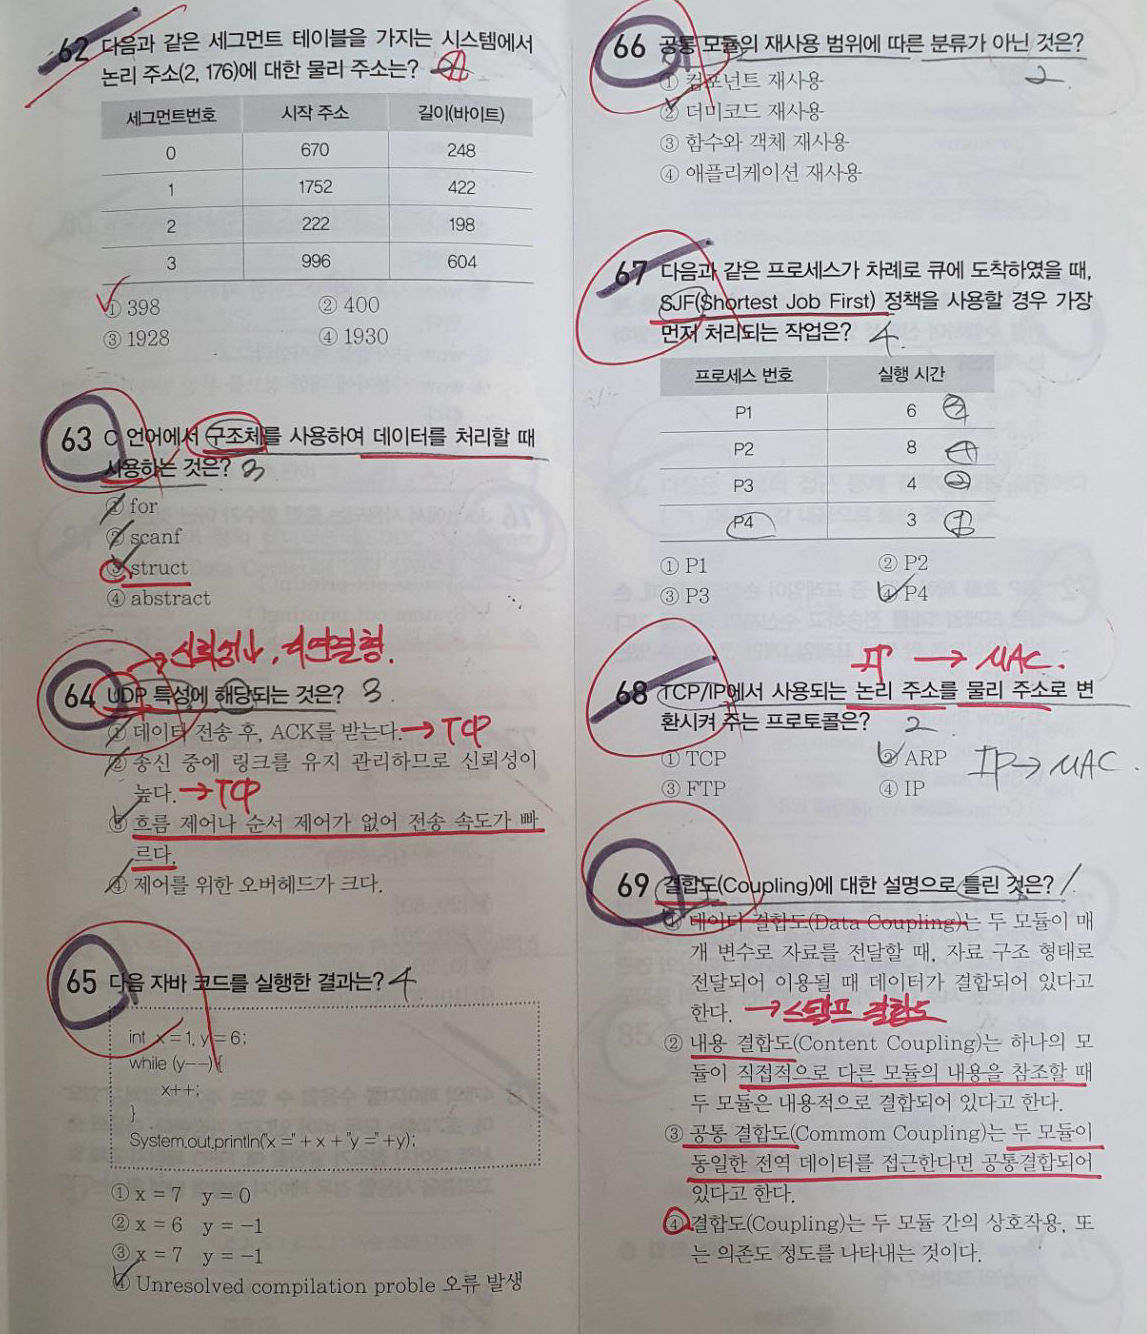 62 다음과 같은 세그먼트 테이블을 가지는 시스템에서
논리 주소(2, 176)에 대한 물리 주소는?
세그먼트번호 시작 주소 길이(바이트)
0 670 248
1 1752 422
2 222 198
3 996 604
① 398 ② 400
③ 1928 ④ 1930
63 C 언어에서 구조체를 사용하여 데이터를 처리할 때
사용하는 것은? 3
① for
② scanf
③ struct
④ abstract
→ 신뢰성나, 비연결형.
64 UDP 특성에 해당되는 것은? 3
① 데이터 전송 후, ACK를 받는다. → TCP
② 송신 중에 링크를 유지 관리하므로 신뢰성이
높다. → TCP
③ 흐름 제어나 순서 제어가 없어 전송 속도가 빠
르다.
④ 제어를 위한 오버헤드가 크다.
65 다음 자바 코드를 실행한 결과는? 4
int x = 1, y = 6;
while (y--) {
x++;
}
System.out.println("x =" + x + "y =" +y);
① x = 7 y = 0
② x = 6 y = -1
③ x = 7 y = -1
④ Unresolved compilation proble 오류 발생
66 공통 모듈의 재사용 범위에 따른 분류가 아닌 것은?
2
① 컴포넌트 재사용
② 더미코드 재사용
③ 함수와 객체 재사용
④ 애플리케이션 재사용
67 다음과 같은 프로세스가 차례로 큐에 도착하였을 때,
SJF(Shortest Job First) 정책을 사용할 경우 가장
먼저 처리되는 작업은? 4
프로세스 번호 실행 시간
P1 6 ③
P2 8 ④
P3 4 ②
P4 3 ①
① P1 ② P2
③ P3 ④ P4
IP → MAC.
68 TCP/IP에서 사용되는 논리 주소를 물리 주소로 변
환시켜 주는 프로토콜은? 2
① TCP ② ARP IP → MAC.
③ FTP ④ IP
69 결합도(Coupling)에 대한 설명으로 틀린 것은? 1
① 데이터 결합도(Data Coupling)는 두 모듈이 매
개 변수로 자료를 전달할 때, 자료 구조 형태로
전달되어 이용될 때 데이터가 결합되어 있다고
한다. → 스탬프 결합도
② 내용 결합도(Content Coupling)는 하나의 모
듈이 직접적으로 다른 모듈의 내용을 참조할 때
두 모듈은 내용적으로 결합되어 있다고 한다.
③ 공통 결합도(Commom Coupling)는 두 모듈이
동일한 전역 데이터를 접근한다면 공통결합되어
있다고 한다.
④ 결합도(Coupling)는 두 모듈 간의 상호작용, 또
는 의존도 정도를 나타내는 것이다.